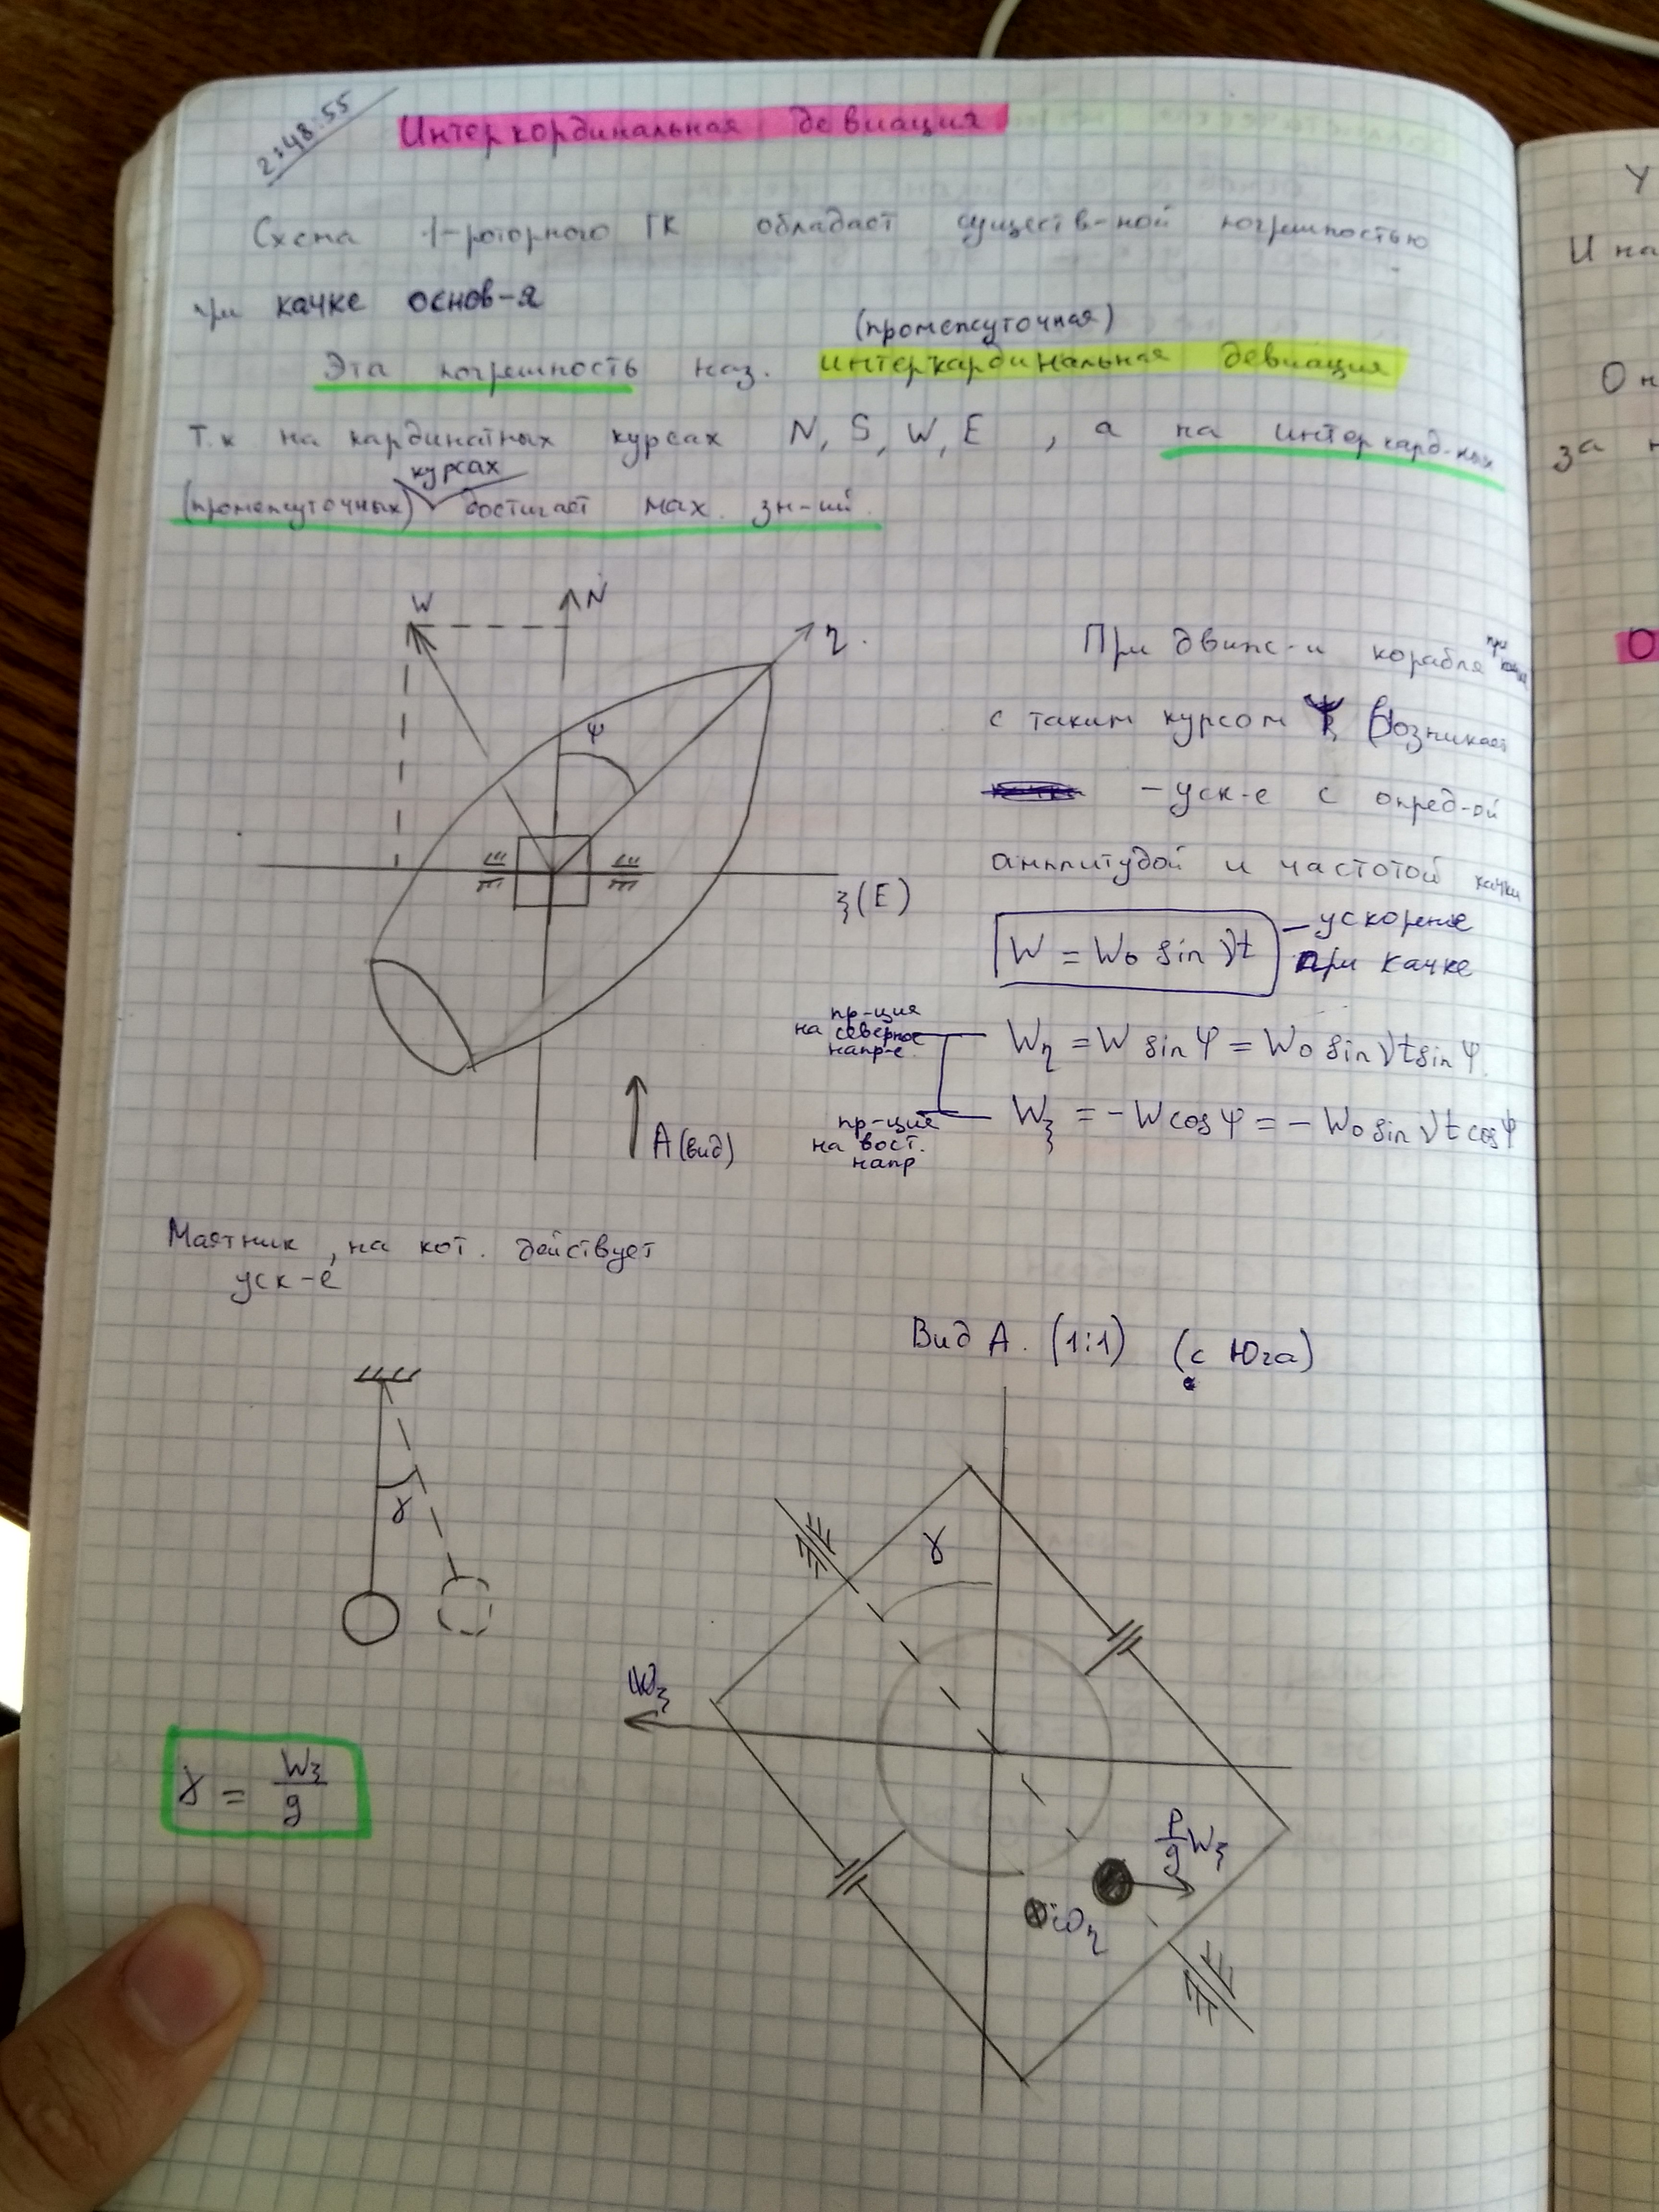 2:48:55
Интеркординальная девиация
Схема 1-роторного ГК обладает существ-ной погрешностью
при качке основ-я
(промежуточная)
Эта погрешность наз. интеркардинальная девиация
т.к на кардинатных курсах N, S, W, E , а на интеркард-ных
курсах
(промежуточных) достигает мах. зн-ий.
W
N
η
ψ
ξ(E)
A(вид)
При движ-и корабля при качке
с таким курсом ψ, возникает
-уск-е с опред-ой
амплитудой и частотой качки
W = W₀ sin νt
- ускорение
при качке
пр-ция
на северное
напр-е.
Wη = W sin ψ = W₀ sin νt sin ψ.
пр-ция
на вост.
напр
Wξ = - W cos ψ = - W₀ sin νt cos ψ
Маятник, на кот. действует
уск-е
γ
γ = Wξ/g
Вид А. (1:1) (с Юга)
γ
Wξ
P/g Wξ
ωη
У
И на
Он
за
О